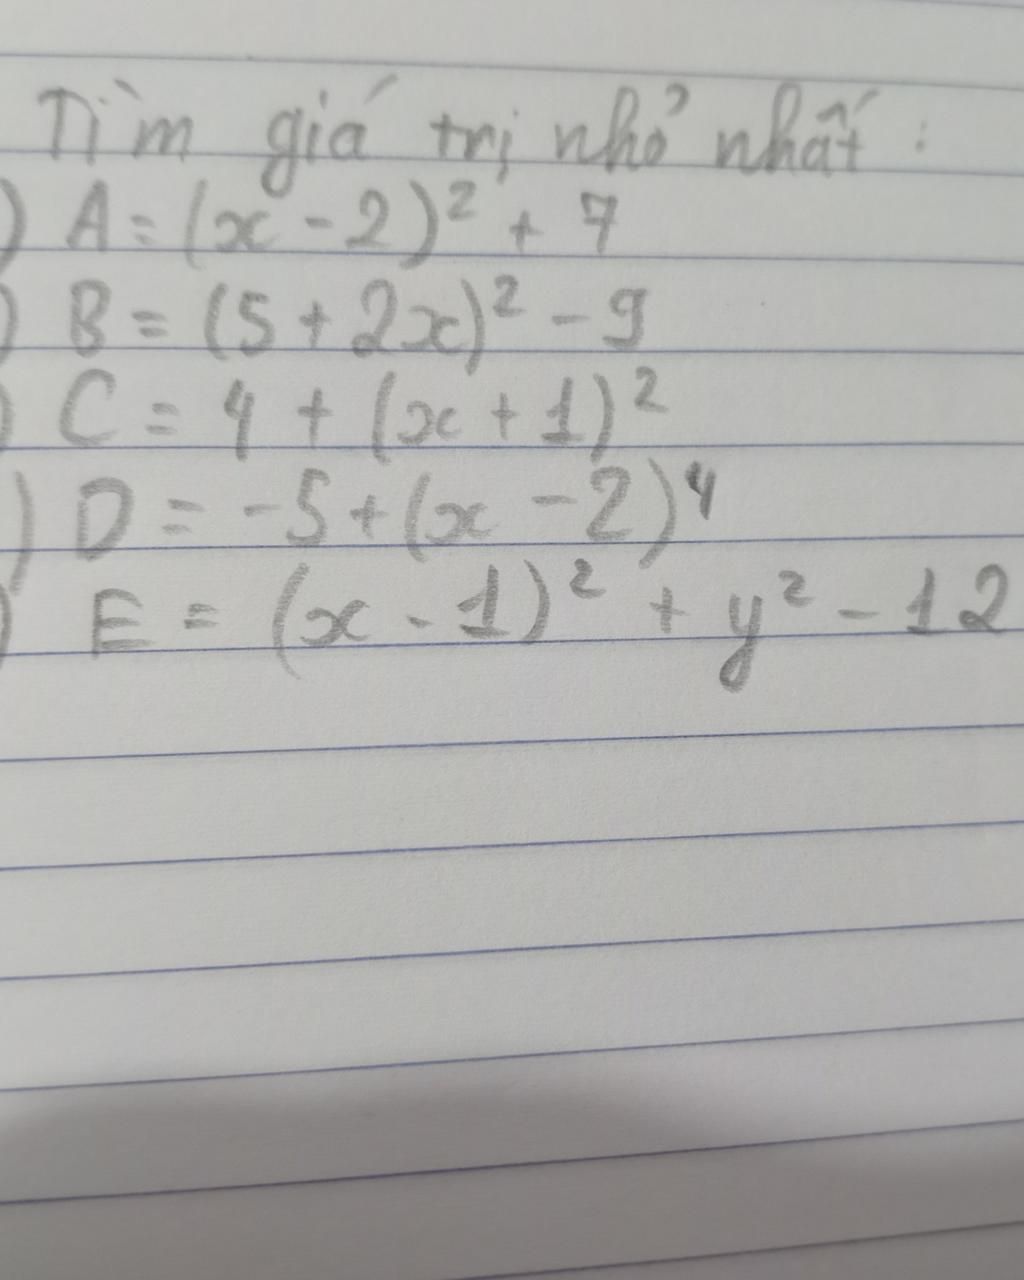 Tìm giá trị nhỏ nhất :
) A = (x - 2)² + 7
) B = (5 + 2x)² - 9
) C = 4 + (x + 1)²
) D = -5 + (x - 2)⁴
) E = (x - 1)² + y² - 12